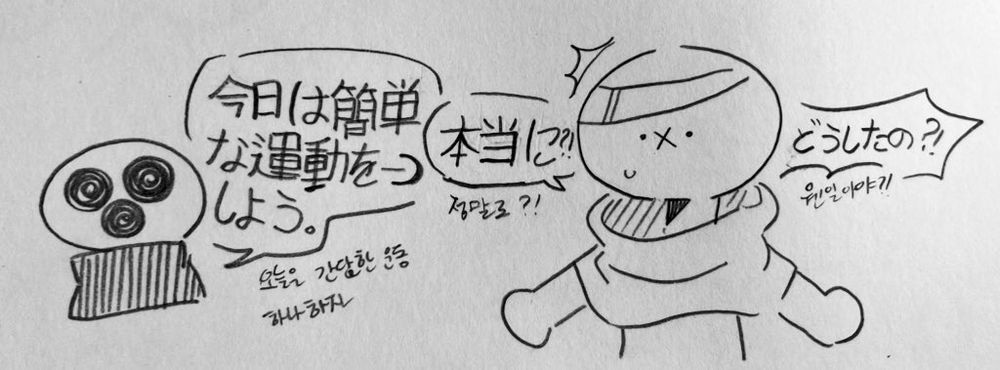 今日は簡単
な運動を一つ
しよう。
오늘은 간단한 운동
하나 하자
本当に?!
정말로?!
どうしたの?!
웬일이야?!